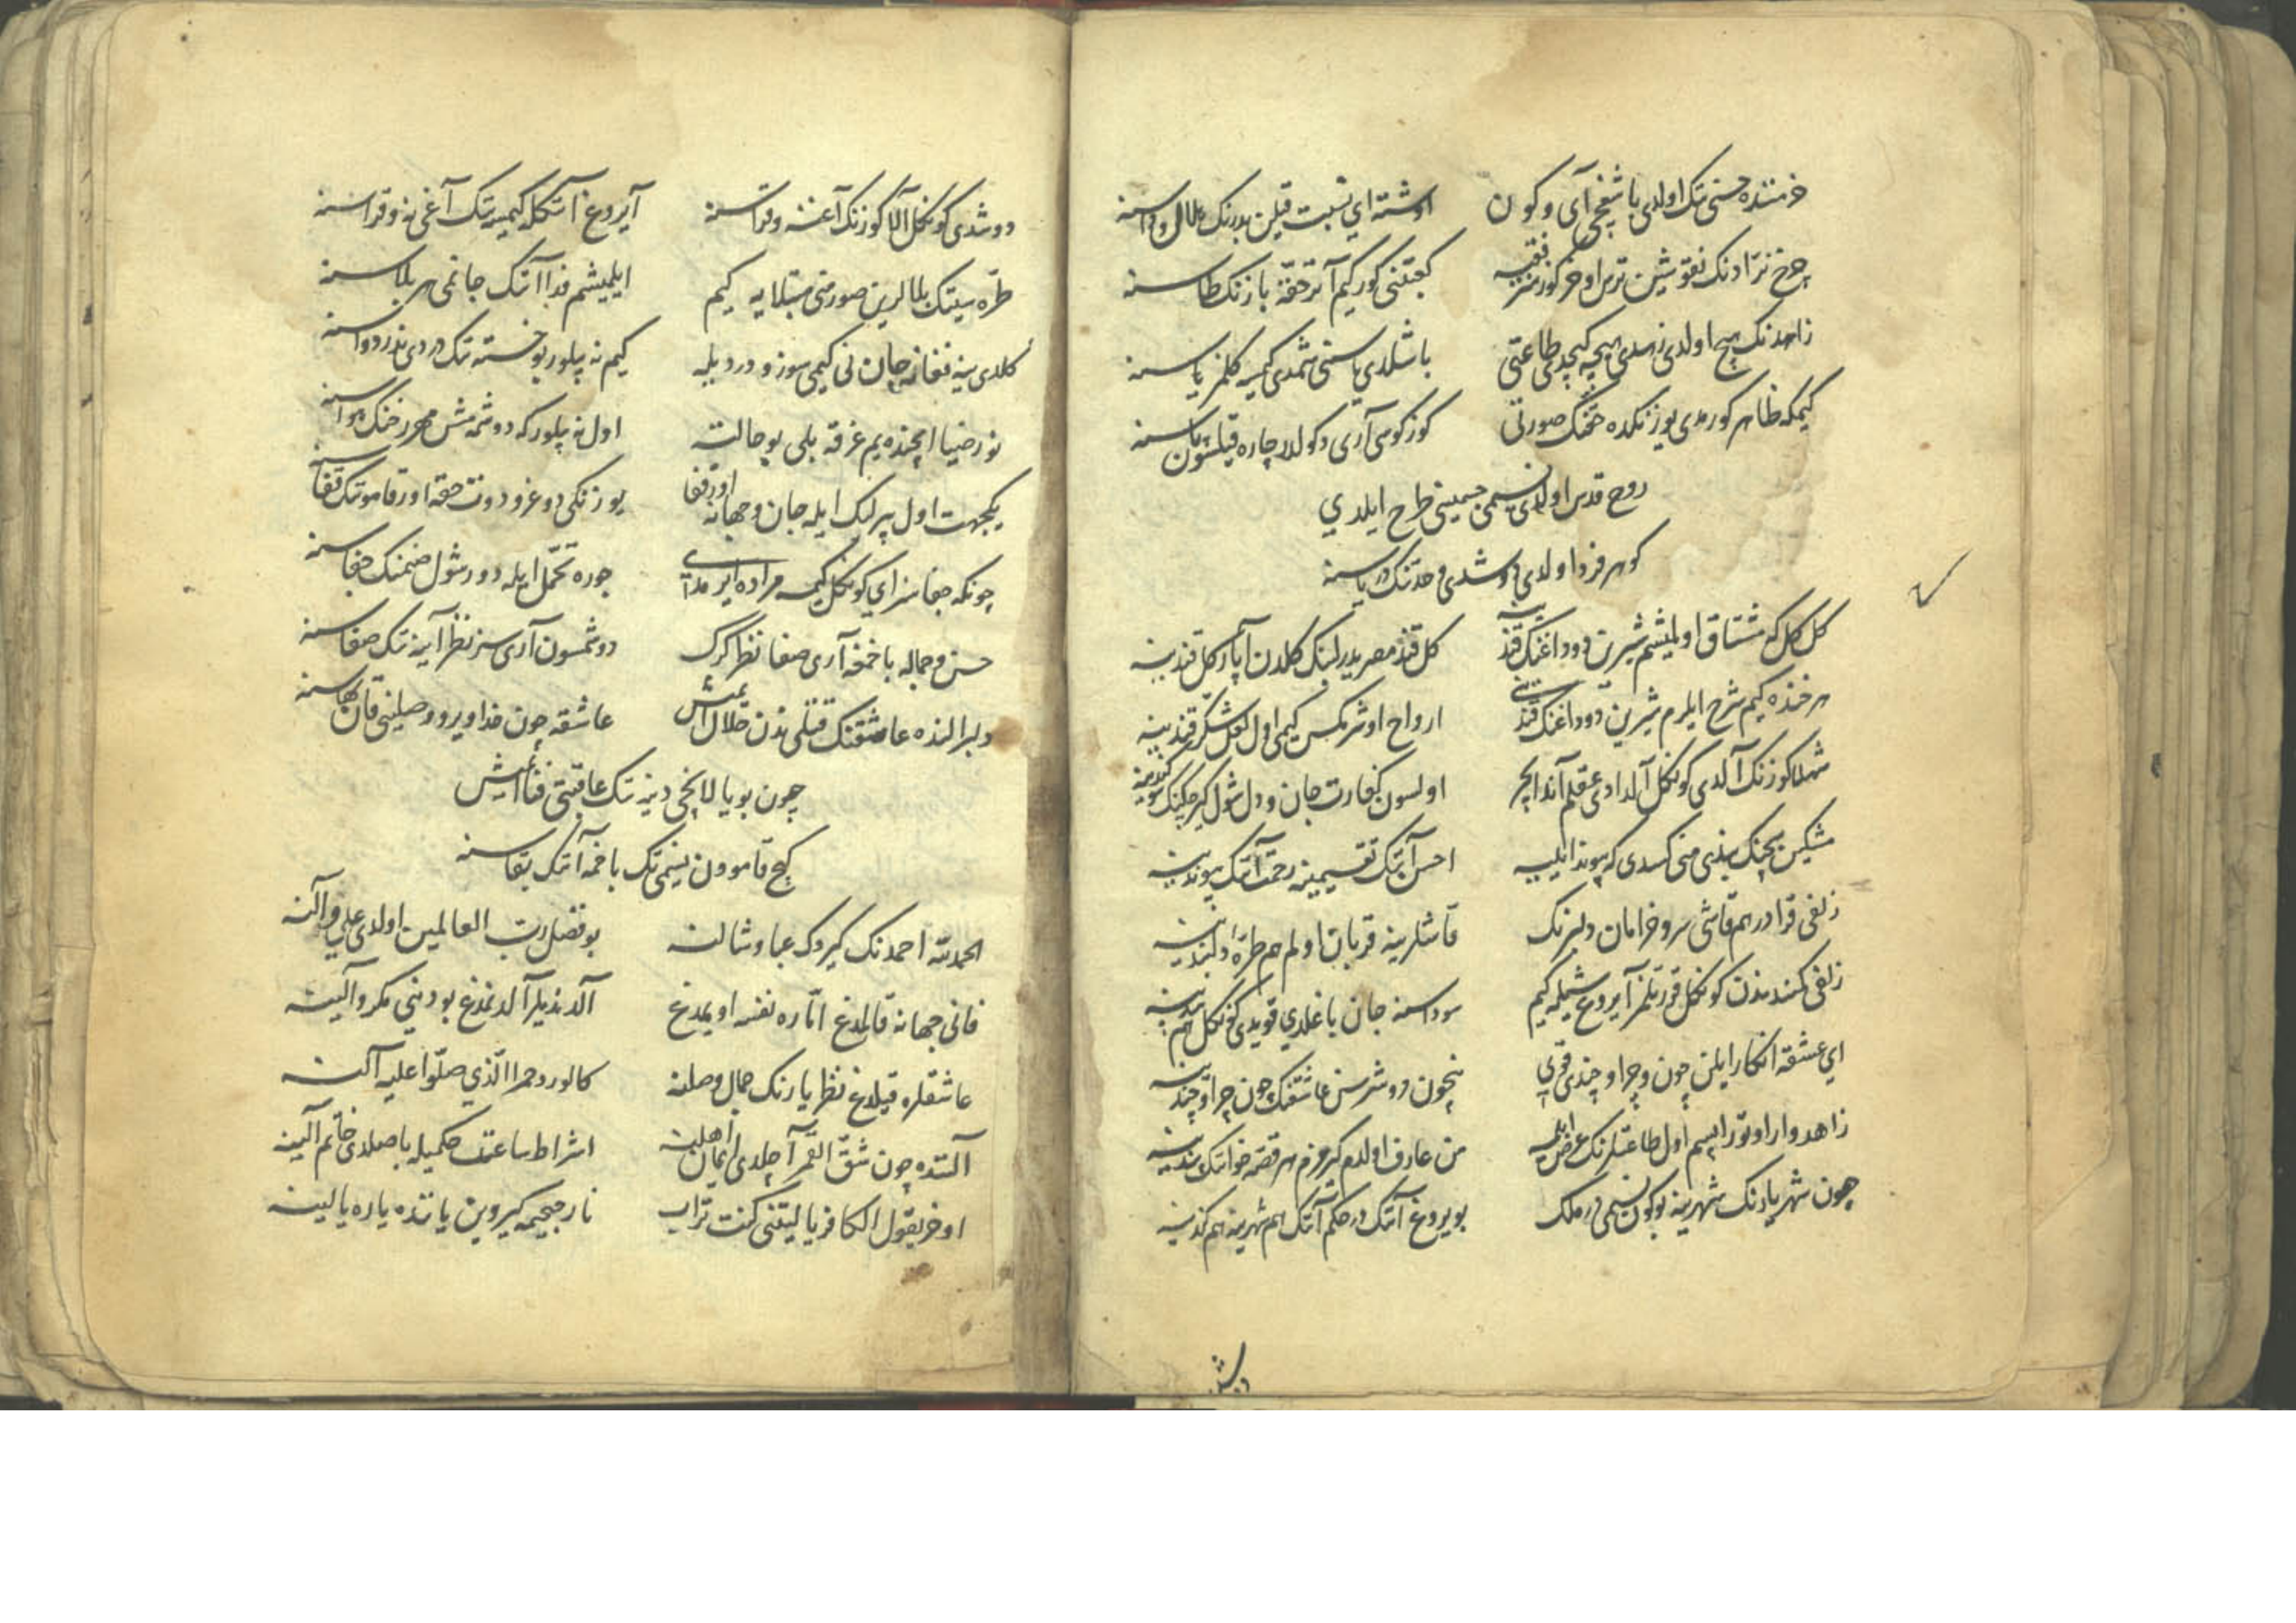 خرمننده حسنی تک اولدی باشقچی آی و کون
اوشته ای نسبت قیلن بدرنک هلال و داسنه
چرخ نرّادنک نقوشین ترس اوخر کورمز فقیه
کعبتنی کور کیم آتر حقّه باز نک طاسنه
زاهدنک هیچ اولدی زهدی هیچه کچدی طاعتی
باشلدی یاسنی شمدی کیمسه کلمز یاسنه
کیمکه ظاهر کورمدی یوزنکده حقنک صورتی
کوزکوسی آری دکولدر چاره قیلسون پاسنه
روح قدس اولدی نسیمی جسمینی طرح ایلدی
کوهر فرد اولدی دوشدی وحدتنک دریاسنه
کل کل که مشتاق اولمیشم شیرین دوداغنک قندینه
کل قند مصریدر لبنک کلدن آپار کل قندینه
هر خنده کیم شرح ایلرم شیرین دوداغنک قندینی
ارواح اوشر مکس کیمی اول لعل شکر قندینه
شهلا کوزنک آلدی کونکل آلدادی عقلم آندایچر
اولسون کفارت جان و دل شول کیرپیکنک سوکندینه
مشکین سچنک بندینی منی کسدی که پیوند ایلیه
احسن آنک تقسیمینه رحمت آنک پیوندینه
زلفی قرا در هم قاشی سرو خرامان دلبرنک
قاشلرینه قربان اولم هم طرّهٔ دلبندینه
زلفی کمندیندن کونکل قورتلمز آیروغ شیله کیم
سوداسنه جان باغلدی قویدی کونکل هم بندینه
ای عشقه انکار ایلین چون و چرا و چندی قوی
نیچون دوشرسن عاشقنک چون و چرا و چندینه
زاهد وار اوتور ایسم اول طاعتلرنک عرض ایله
من عارف اولدم کرمزم هر قصه خوانک پندینه
چون شهریارنک شهرینه بوکون نسیمی در ملک
بویروغ آنک در حکم آنک هم شهرینه هم کندینه
دوشدی کونکل آلا کوزنک آغنه و قراسنه
آیروغ آنک کله کیمسه نک آغی نه و قراسنه
طرّه سینک بلالرین صورمنی مبتلایه کیم
ایلمیشم فدا آنک جانمی هر بلاسنه
کلدی ینه فغانه جان نی کیمی سوز و درد یله
کیم نه بیلور بو خسته نک دردی ندر دواسنه
نور ضیا ایچنده یم غرقه بلی بو حالت
اول نه بیلور که دوشمه مش مهر رخنک هواسنه
یکجهت اول بیرلیک ایله جان و جهانه اور قفا
یوزنکی دوغرو دوت حقه اور قاموتک قفاسنه
چونکه جفاسز ای کونکل کیمسه مراده ایرمدی
جوره تحمّل ایله دور شول صنمنک جفاسنه
حسن و جماله باخمغه آری صفا نظر کرک
دوشمسون آری سز نظر آینه نک صفاسنه
دلبر النده عاشقنک قتلی ندن حلال ایمش
عاشقه چون فدا ویرور وصلینی قان بهاسنه
چون بو یالانچی دنیه نک عاقبتی فنا ایمش
کچ قامودن نسیمی تک باخمه آنک بقاسنه
الحمد لله احمدنک کیردک عبا و شالنه
بو فضل رب العالمین اولدی علی و آلنه
فانی جهانه قالمدغ امّاره نفسه اویمدغ
آلدندیلر آلدنمدغ بو دنیی مکر و آلینه
عاشقلره قیلدغ نظر یارنک جمال وصلنه
کالورد حمرا الّذی صلّوا علیه آلنه
آلنده چون شقّ القمر آچلدی ایمان اهلینه
اشراط ساعت حکمیله باصلدی خاتم آلینه
اوخر یقول الکافر یا لیتنی کنت تراب
نار جحیمه کیروبن یا تنده یاره یالینه